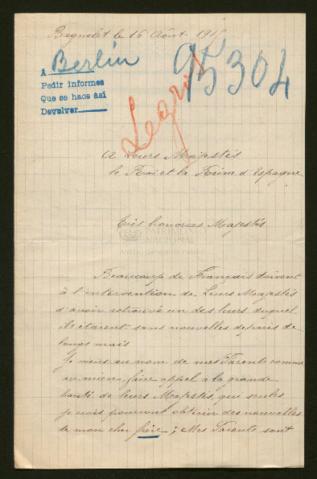 Bagnolet le 16 Août 191
A Berlin
Pedir informes
Que se haos asi
Devolver
95304
Legris
A Leurs Majestés
le Roi et la Reine d'Espagne
Très honorées Majestés
Beaucoup de Français doivent
à l'intervention de Leurs Majestés
d'avoir retrouvé un des leurs duquel
ils étaient sans nouvelles depuis de
longs mois
Je viens au nom de mes Parents comme
au mien, faire appel à la grande
bonté de leurs Majestés, qui seules
je crois, pourront obtenir des nouvelles
de mon cher frère ; Mes Parents sont